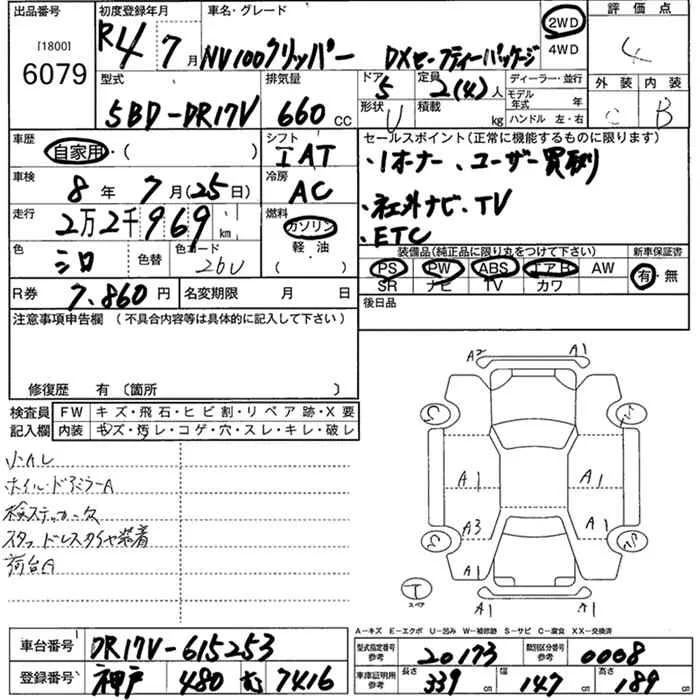 出品番号 初度登録年月 車名・グレード 評価点
[1800]
6079
R4 7月 NV100クリッパー DXセーフティーパッケージ 2WD 4WD 4
型式 排気量 ドア 定員 ディーラー・並行 外装 内装
5BD-DR17V 660 cc 5 2(4)人 モデル年式 年 C B
形状 U 積載 kg ハンドル 左・右
車歴 シフト セールスポイント(正常に機能するものに限ります)
自家用・( ) IAT ・1オーナー、ユーザー買取り
車検 冷房
8年 7月(25日) AC ・社外ナビ、TV
走行 燃料
2万2千969 km ガソリン ・ETC
色 色替 色コード 軽・油 装備品(純正品に限り丸をつけて下さい) 新車保証書
シロ 26U ( ) PS PW ABS エアB AW 有・無
SR ナビ TV カワ
R券 7,860円 名変期限 月 日 後日品
注意事項申告欄(不具合内容等は具体的に記入して下さい)
修復歴 有〔箇所 〕
検査員 FW キズ・飛石・ヒビ割・リペア跡・X要
記入欄 内装 キズ・汚レ・コゲ・穴・スレ・キレ・破レ
小カレ
ホイル・ドアミラーA
検ステッカー欠
スタッドレスタイヤ装着
荷台A
A2 A1
A1 A1
A3 A1
A1 A1
T
スペア
A-キズ E-エクボ U-凹み W-補修跡 S-サビ C-腐食 XX-交換済
車台番号 DR17V-615253 型式指定番号 参考 20173 類別区分番号 参考 0008
登録番号 神戸 480 む 7416 車庫証明用 参考 長さ 339 cm 幅 147 cm 高さ 189 cm